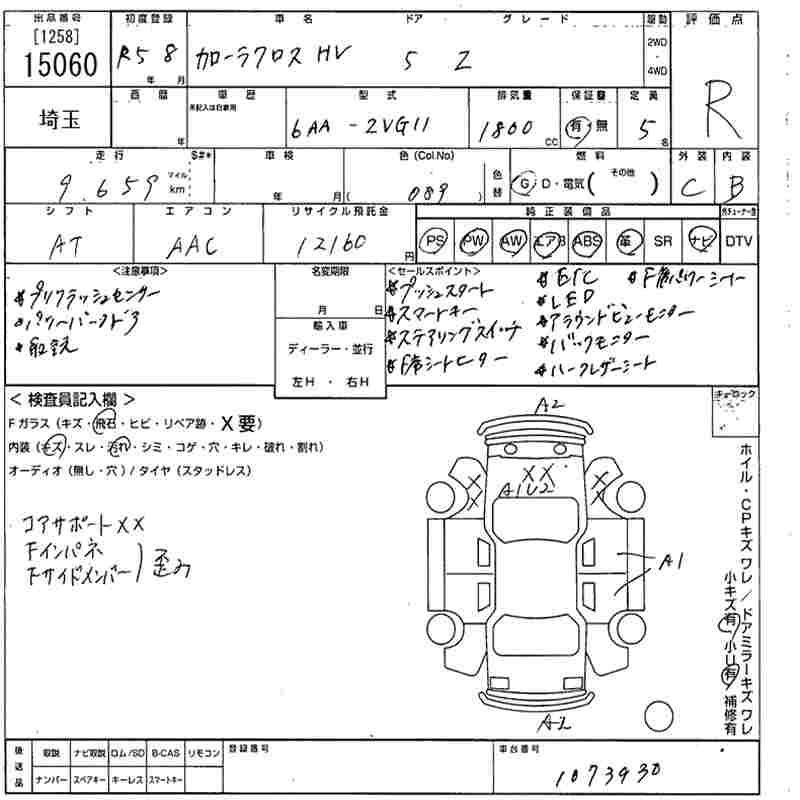 出品番号 初度登録 車名 ドア グレード 駆動 評価点
[1258]
15060
R5 8 年 月
カローラクロス HV 5 Z
2WD
・
4WD
R
埼玉
車暦 年
車歴
未記入は自家用
型式
6AA-2VG11
排気量
1800 CC
保証書
有・無
定員
5 名
走行
9,659 マイル km
S#*
車検
年 月
色(Col.No)
(089)
色替
燃料
G・D・電気( その他 )
外装
C
内装
B
シフト
AT
エアコン
AAC
リサイクル預託金
12160 円
純正装備品
PS PW AW エアB ABS 革 SR ナビ DTV
<注意事項>
*プリクラッシュセンサー
*パワーバックドア
*取説
名変期限
月 日
輸入車
ディーラー・並行
左H ・ 右H
<セールスポイント>
*プッシュスタート
*スマートキー
*ステアリングスイッチ
*F席シートヒーター
*ETC
*LED
*アラウンドビューモニター
*バックモニター
*ハーフレザーシート
*F席パワーシート
< 検査員記入欄 >
Fガラス(キズ・飛石・ヒビ・リペア跡・X要)
内装(キズ・スレ・汚れ・シミ・コゲ・穴・キレ・破れ・割れ)
オーディオ(無し・穴)/タイヤ(スタッドレス)
コアサポートXX
Fインパネ
Fサイドメンバー ) 歪み
A2
XX
A1U2
X
X
X
X
A1
A2
キーロック
ホイル・CPキズ ワレ / ドアミラーキズ ワレ
小キズ有 小U有 補修有
後送品
取説 ナビ取説 ロム/SD B-CAS リモコン
ナンバー スペアキー キーレス スマートキー
登録番号
車台番号
1073930